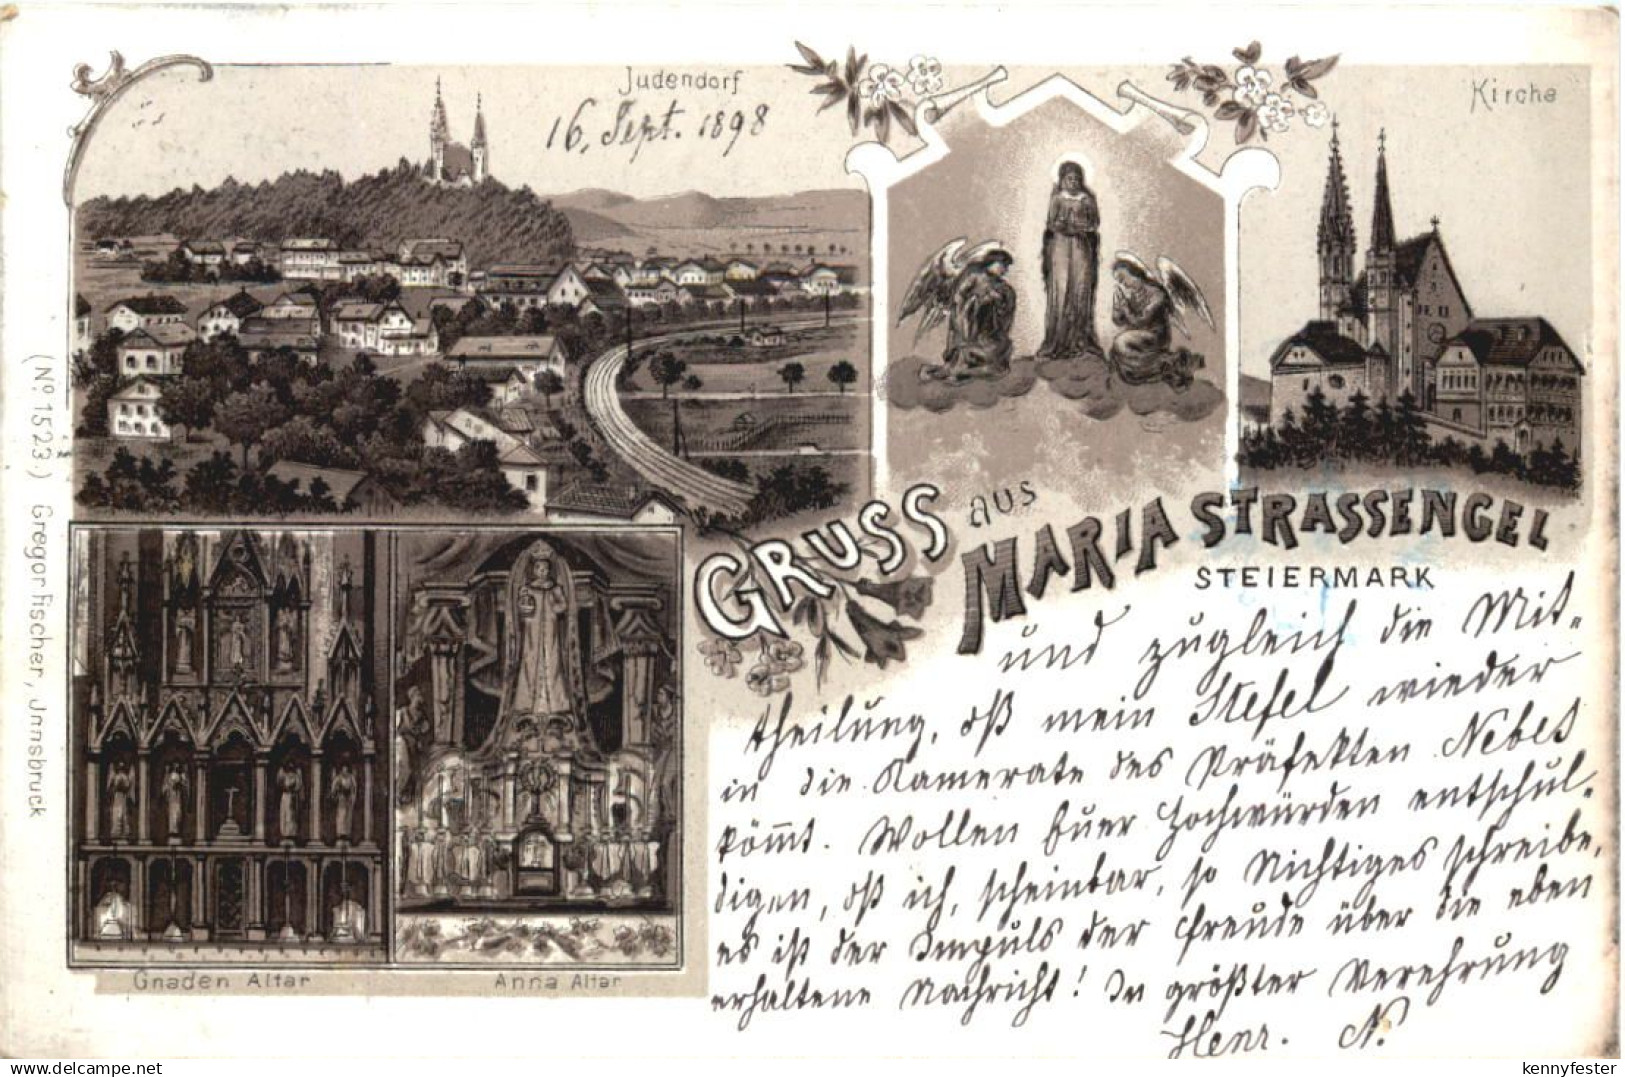 Judendorf
16. Sept. 1898
Kirche
GRUSS aus
MARIA STRASSENGEL
STEIERMARK
und zugleich die Mit-
theilung, dß mein Stefel wieder
in die Kamerate des Präfekten Nebes
kömmt. Wollen Euer Hochwürden entschul-
digen, dß ich, scheinbar, so Nichtiges schreibe,
es ist der Impuls der Freude über die eben
erhaltene Nachricht! In größter Verehrung
Henr. N.
Gnaden Altar
Anna Altar
(No. 1523.) Gregor Fischer, Innsbruck
kennyfester